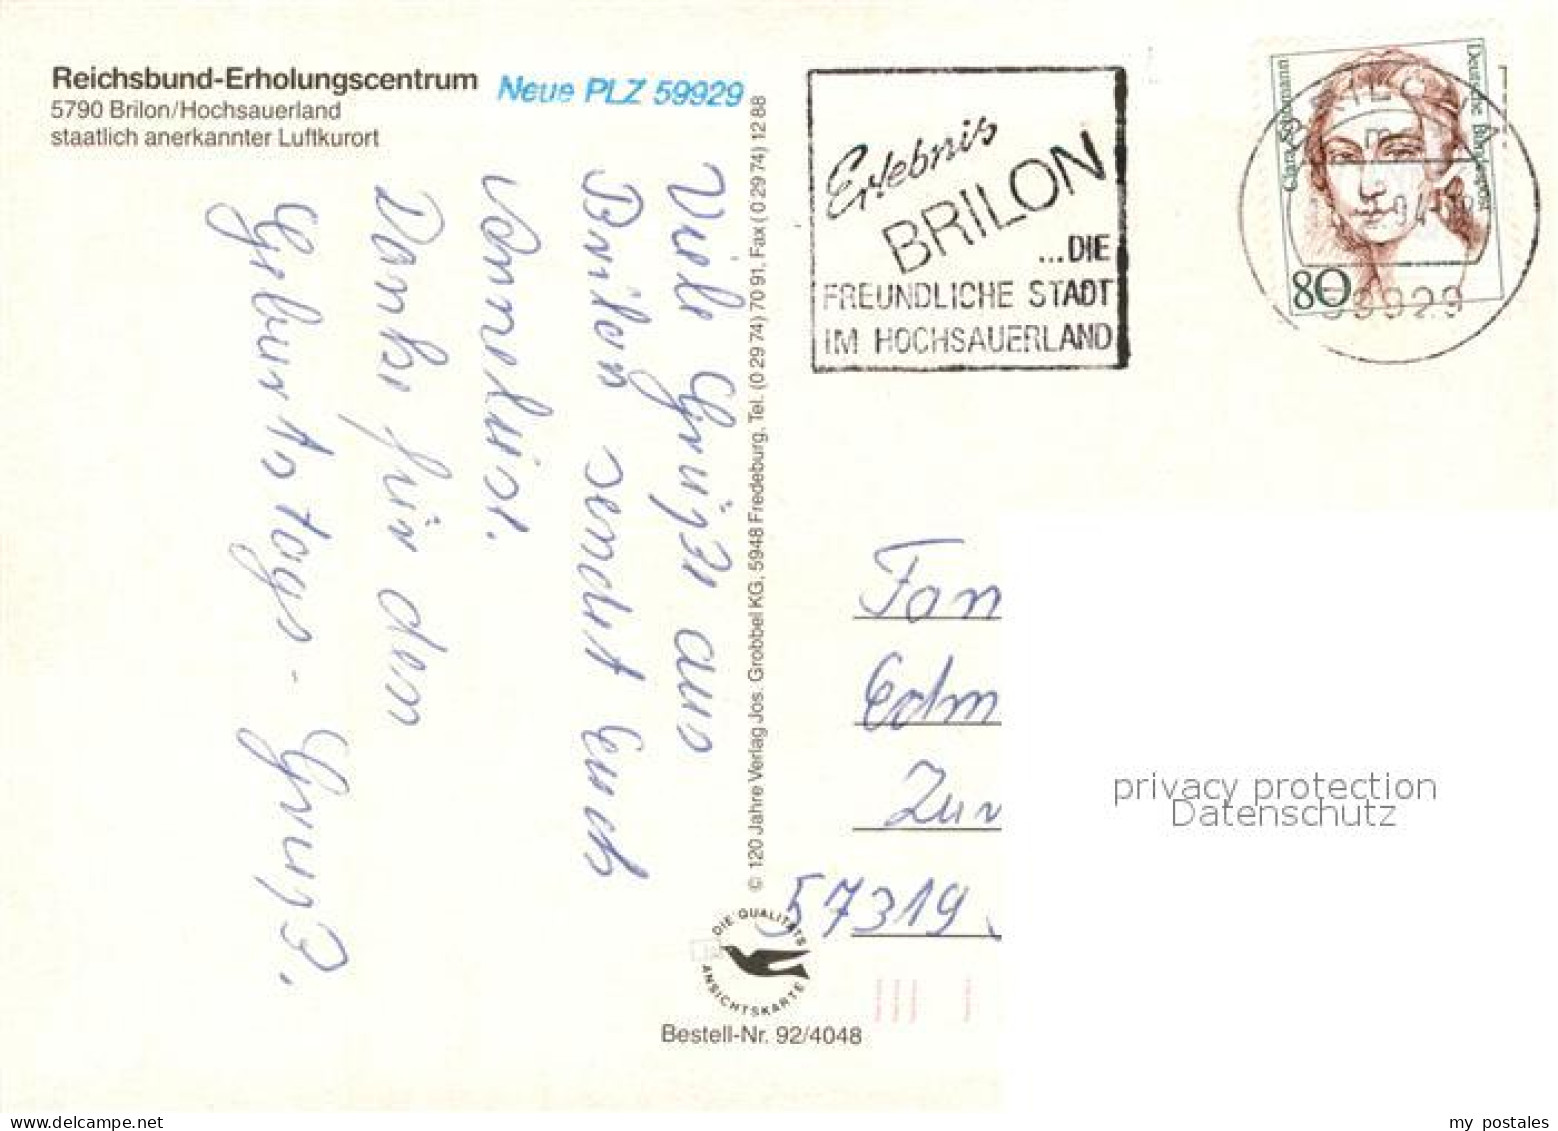 Reichsbund-Erholungscentrum
5790 Brilon/Hochsauerland
staatlich anerkannter Luftkurort
Neue PLZ 59929
Viele Grüße aus
Brilon sendet Euch
Annelise.
Danke für den
Geburtstags-Gruß.
© 120 Jahre Verlag Jos. Grobbel KG, 5948 Fredeburg, Tel. (0 29 74) 70 91, Fax (0 29 74) 12 88
Erlebnis
BRILON
...DIE
FREUNDLICHE STADT
IM HOCHSAUERLAND
Clara Schumann
Deutsche Bundespost
80
BRILON
59929
Fam
Edm
Zur
57319
DIE QUALITÄTS
ANSICHTSKARTE
Bestell-Nr. 92/4048
privacy protection
Datenschutz
my postales